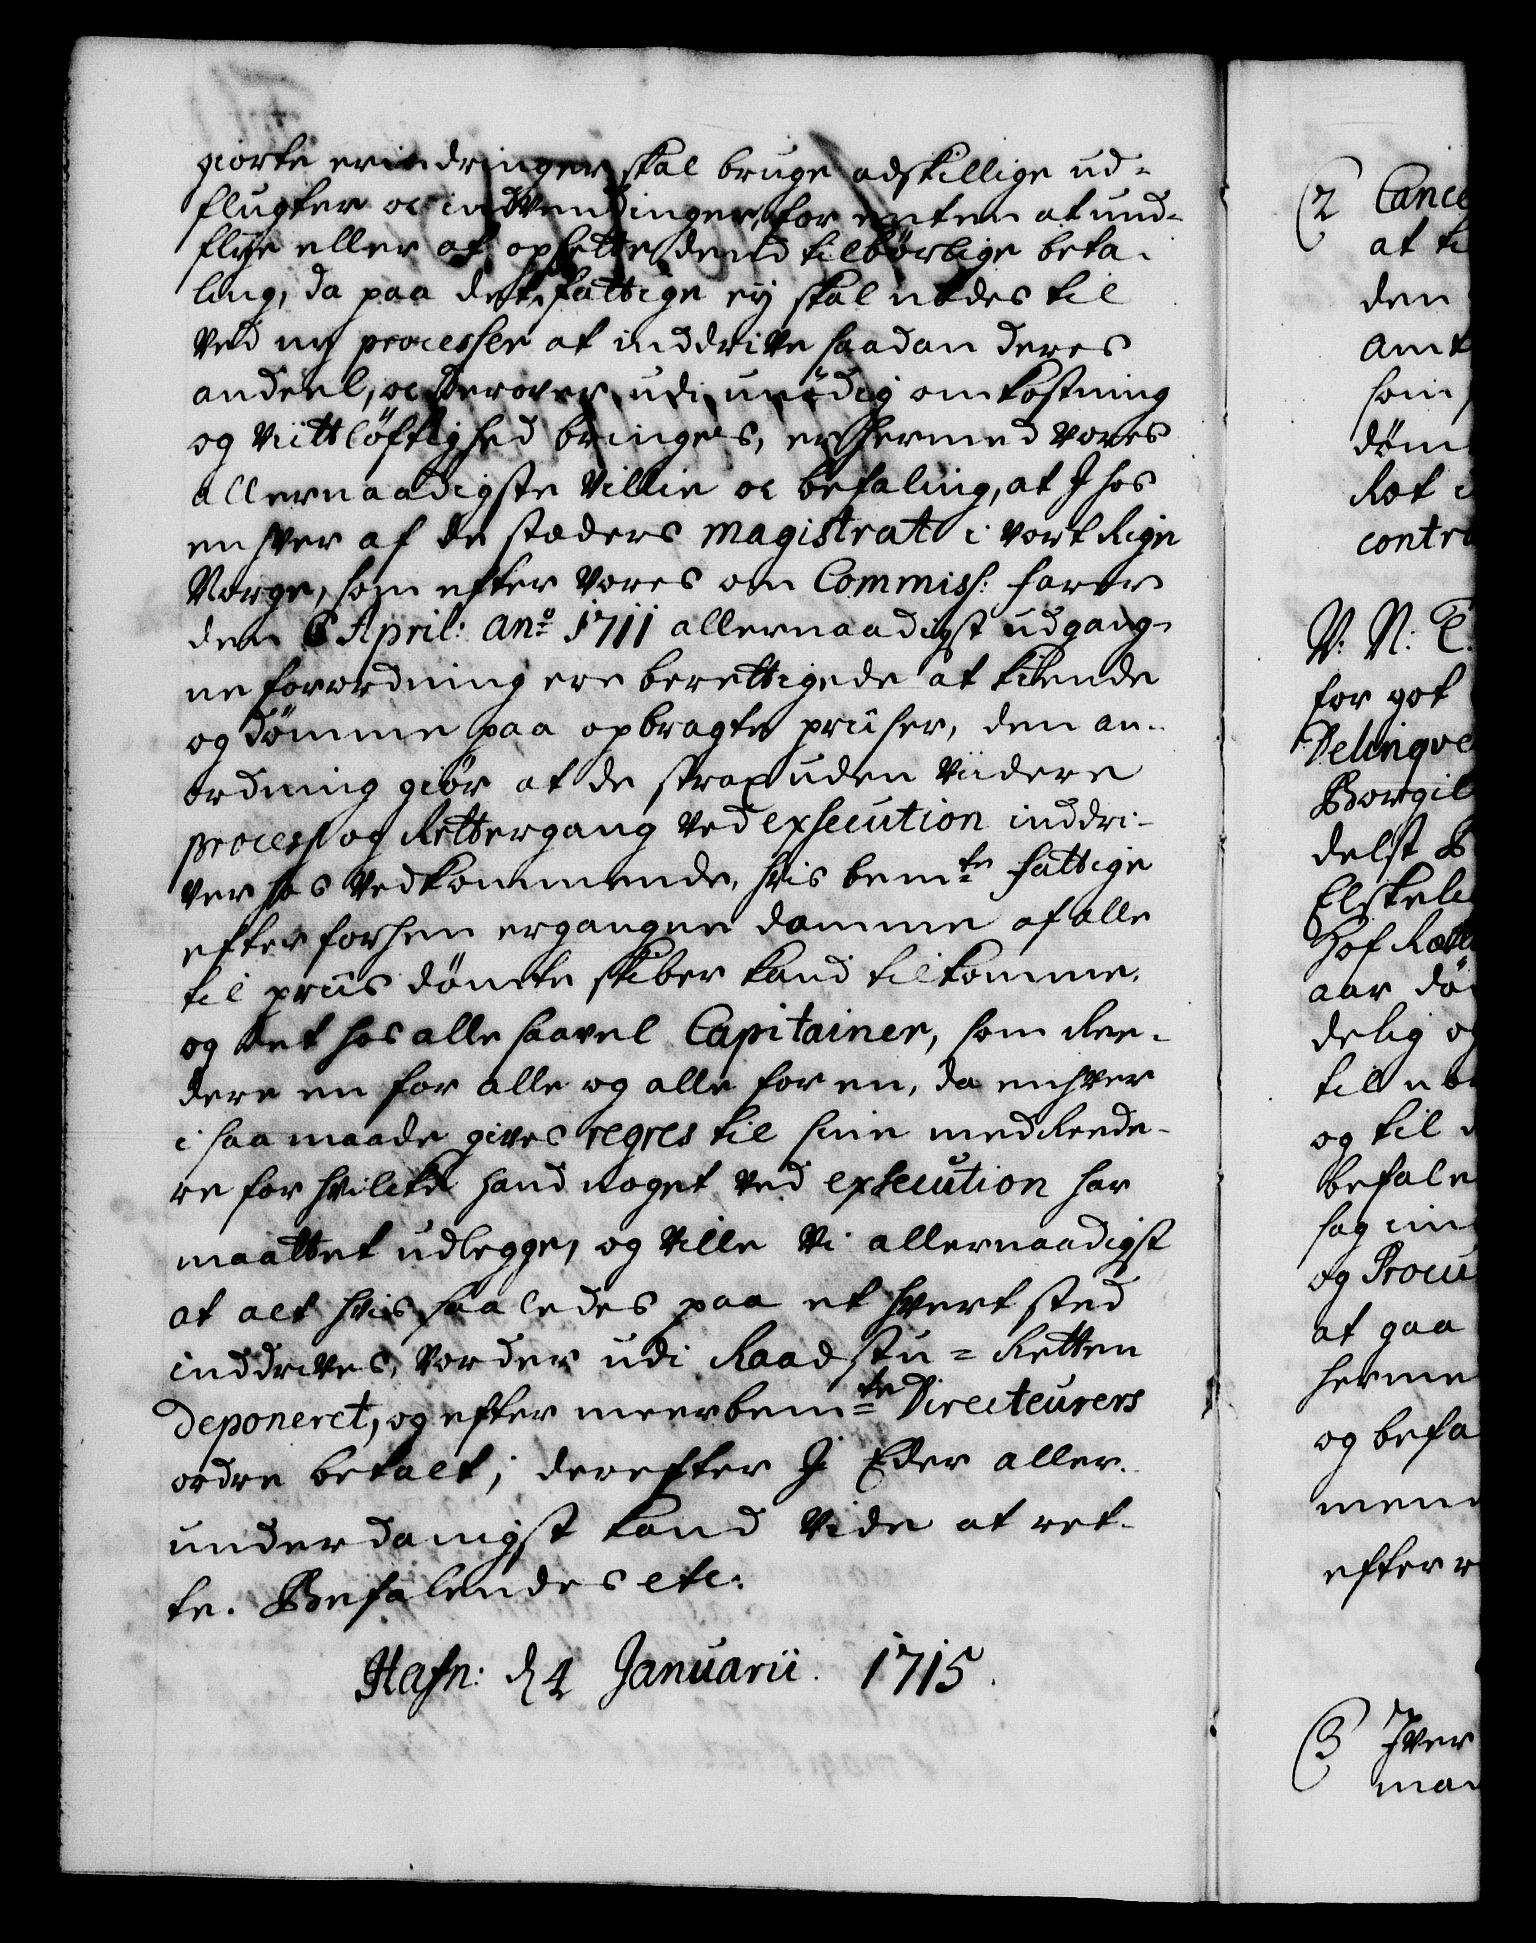 giorte erindringer skal bruge adskillige ud-
flugter oc indvendinger, for enten at und-
flye eller at opsette dend tilbörlige beta-
ling, da paa det fattige ey skal nödes til
ved ny processer at inddrive saadan deres
andeel, oc derover udi unödig omkostning
og viitlöftighed bringes, er hermed vores
allernaadigste villie oc befaling, at I hos
enhver af de stæders magistrat i vort Rige
Norge, som efter vores om Commiss: farer
den 6 April: Anº 1711 allernaadigst udgang-
ne forordning ere berettigede at kiende
og dömme paa opbragte priiser, den an-
ordning giör at de strax uden viidere
process og Rettergang ved execution inddri-
ver hos vedkommende, hvis bemte fattige
efter forhen ergangne domme af alle
til priis dömte skiber kand tilkomme,
og det hos alle saavel Capitainer, som Ree-
dere en for alle og alle for en, da enhver
i saa maade gives regres til sine medReede-
re for hvilcke hand noget ved execution har
maattet udlegge, og ville Vi allernaadigst
at alt hvis saaledes paa et hvert sted
inddrives, vorder udi Raadstu-Retten
deponeret, og efter meerbemte Directeurers
ordre betalt; derefter I Eder aller-
underdanigst kand vide at ret-
te. Befalendes etc:
Hafn: d 4 Januarii 1715.
(2 Cance
at ti
den
Amt
som
döm
Ret
contra
V. N. T.
for got
Delinqve
Borgil
delst B
Elskeli
Hof Rett
aar dö
delig og
til
og til
befale
sag ind
og Procu
at gaa
herme
og befa
men
efter
(3 Iver
man